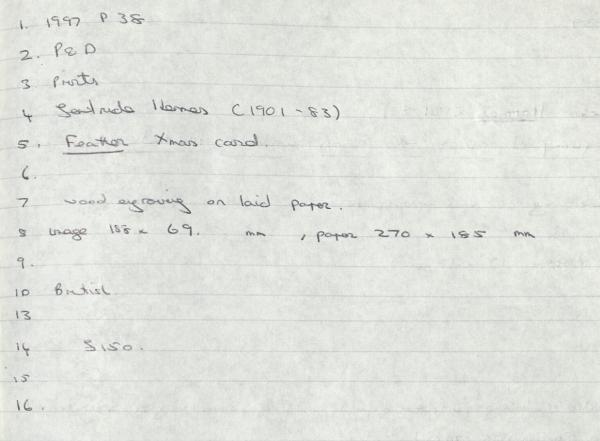 1. 1997 P 38
2. P & D
3 Prints
4 Gertrude Hermes (1901-83)
5. Feather Xmas card.
6.
7 wood egraving on laid paper.
8 image 158 x 69. mm , paper 270 x 185 mm
9.
10 British
13
14 $150.
15
16.